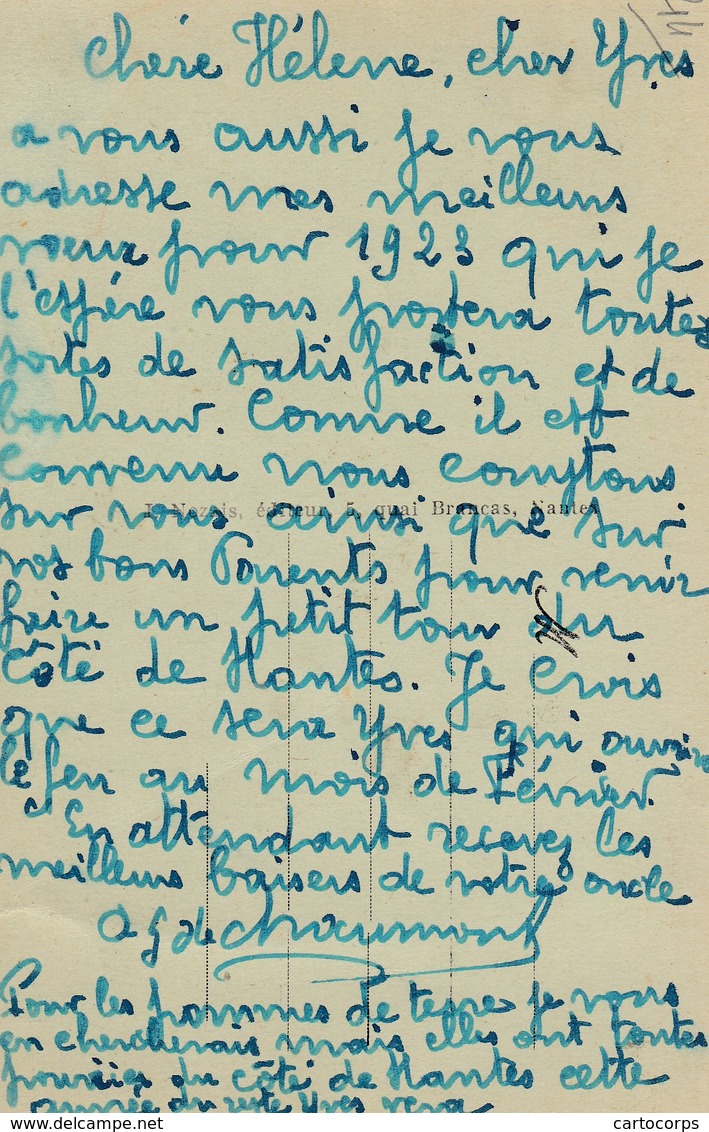 Chère Hélène, cher Yves
a vous aussi je vous
adresse mes meilleurs
voeux pour 1923 qui je
l'espère vous portera toutes
sortes de satisfaction et de
bonheur. Comme il est
Convenu nous comptons
I. Nozais, éditeur, 5, quai Brancas, Nantes
sur vous ainsi que sur
vos bons Parents pour venir
faire un petit tour du
Côté de Nantes. Je Crois
que ce sera Yves qui ouvrira
le feu au mois de Février.
En attendant recevez les
meilleurs baisers de votre oncle
de Chaumont
Pour les pommes de terre je vous
en chercherais mais elles ont toutes
pourries du côté de Nantes cette
année du reste Yves verra
cartocorps